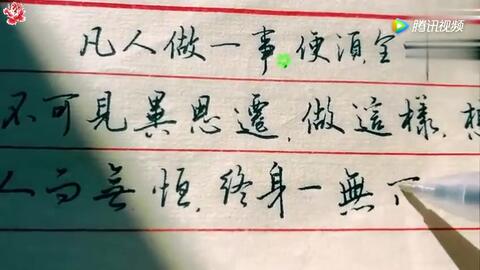 腾讯视频
凡人做一事,便須全
不可見異思遷,做這樣,想
人而無恆,終身一無